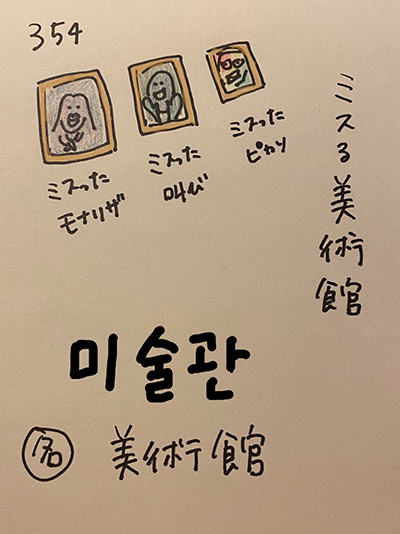 354
ミスった
モナリザ
ミスった
叫び
ミスった
ピカソ
ミスる美術館
미술관
名 美術館